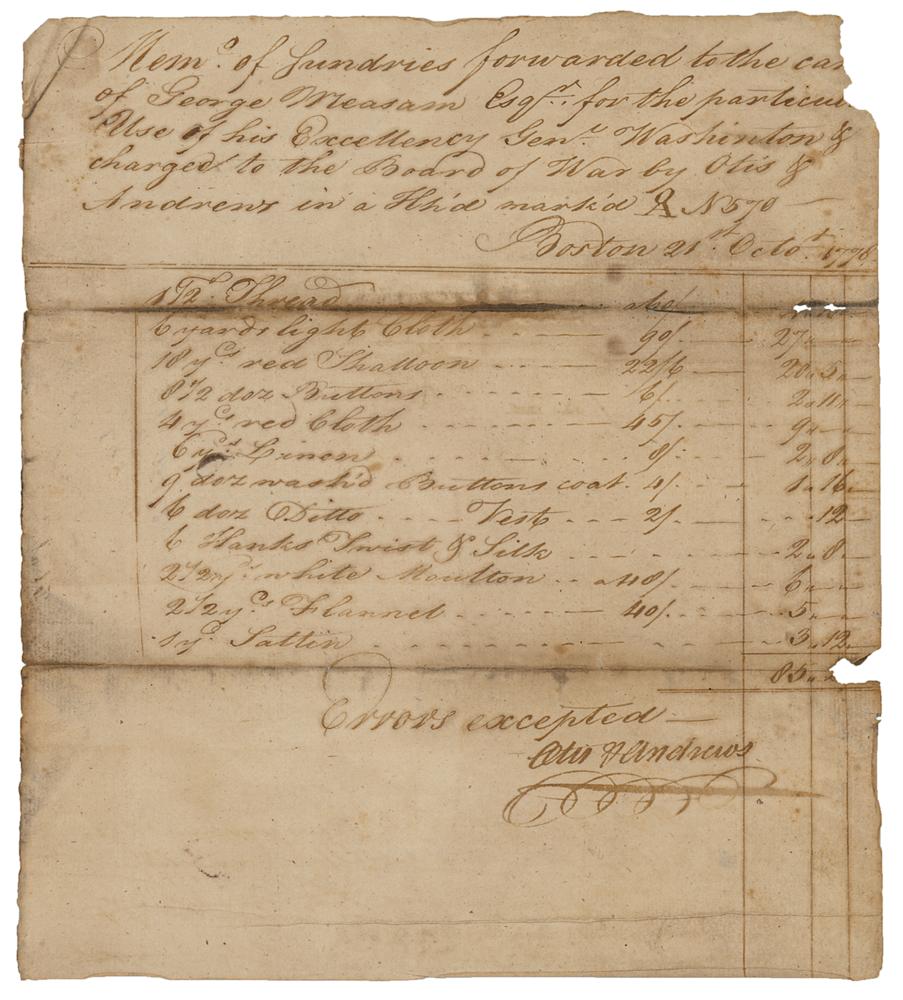 Mem.o of Sundries forwarded to the
of George Measam Esqr. for the
Use of his Excellency Gen.l Washinton &
charged to the Board of War by Otis &
Andrews in a Hh'd mark'd N 570
Boston 21st Octo.r
Thread
6 yards light Cloth 90/ 27
18 yds red Shalloon 22/6 20 5
8 1/2 doz Buttons 6/ 2 11
4 yds red Cloth 45/ 9
6 yds Linen 8/ 2 8
9 doz wash'd Buttons coat 4/ 1 16
6 doz Ditto Vest 2/ 12
6 Hanks Twist & Silk 2 8
2 1/2 yds white Moulton a 48/ 6
2 1/2 yds Flannel 40/ 5
1 yd Sattin 3 12
85
Errors excepted
Otis & Andrews